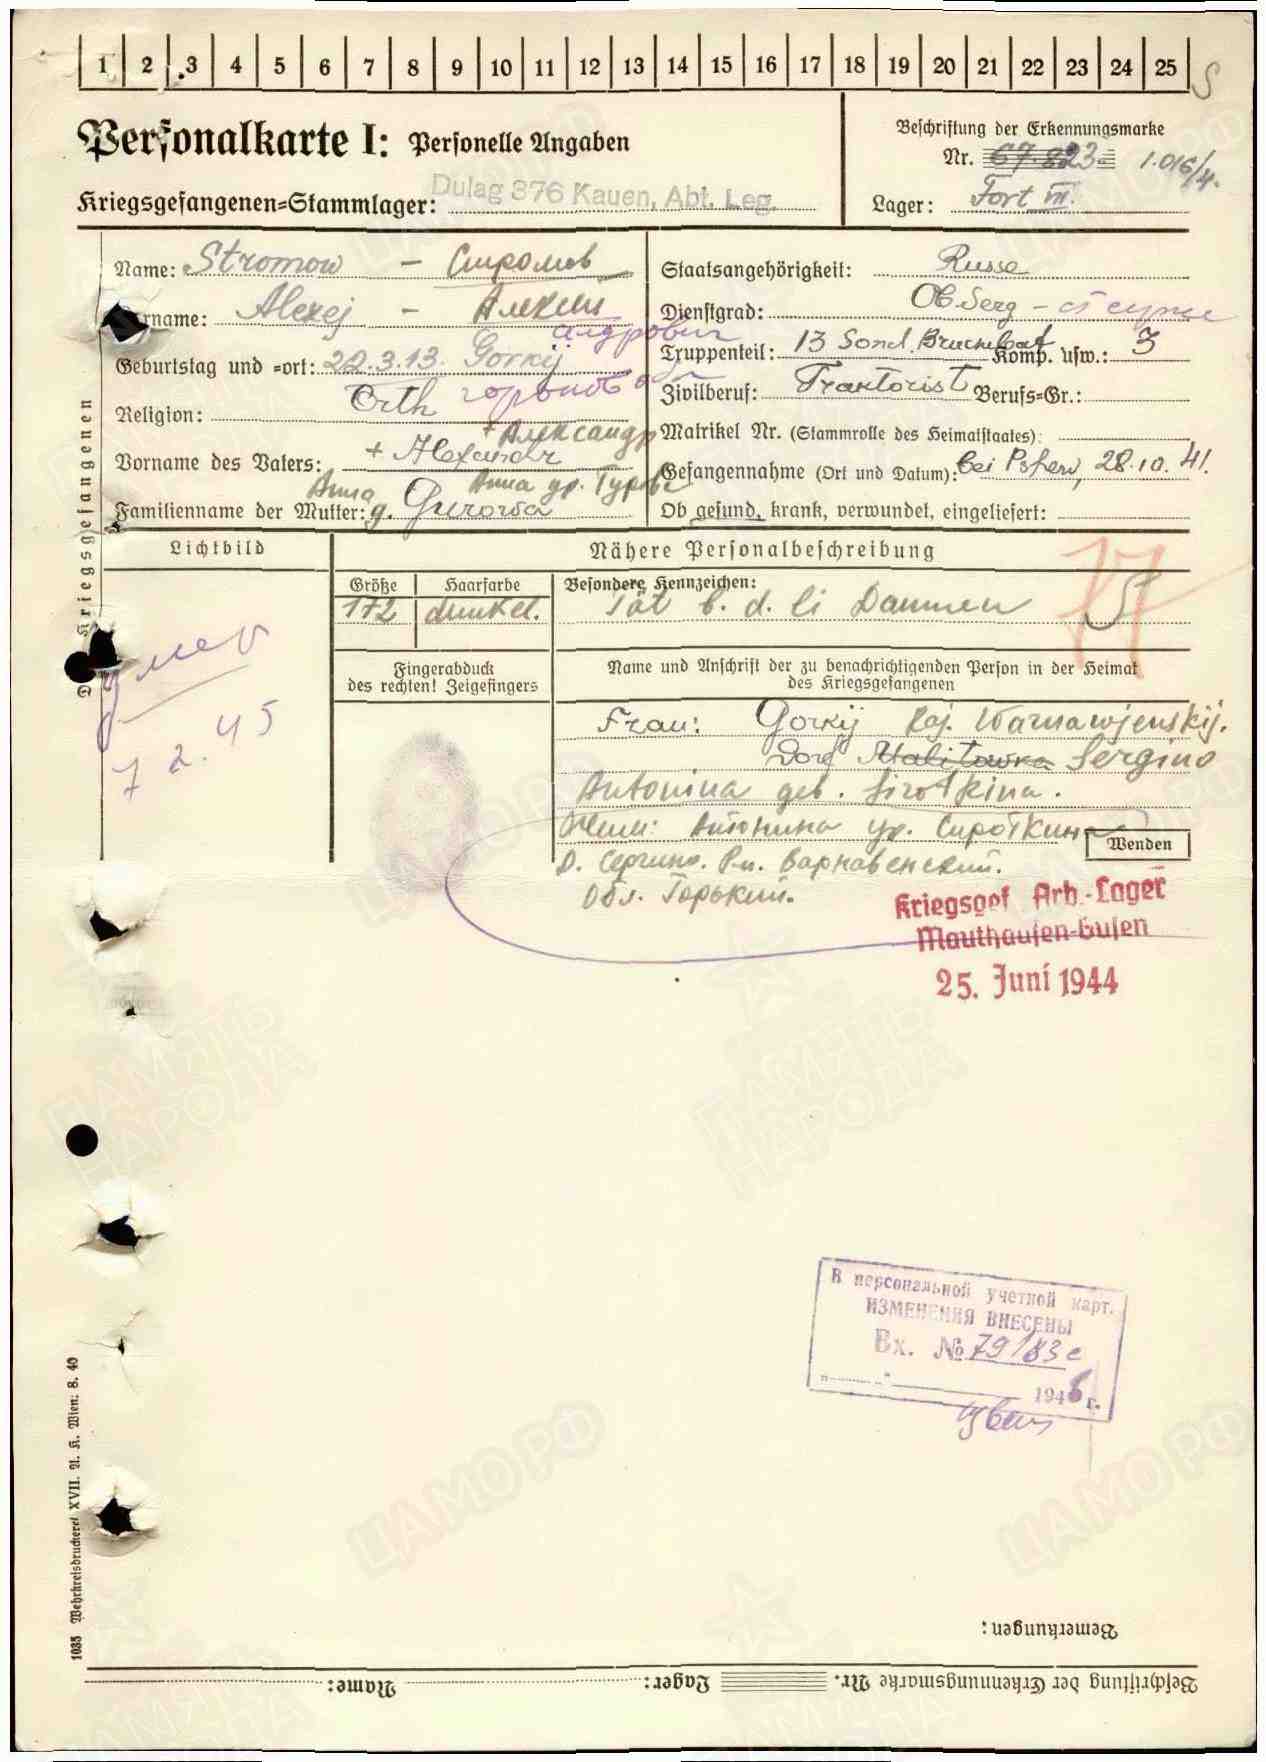 1 2 3 4 5 6 7 8 9 10 11 12 13 14 15 16 17 18 19 20 21 22 23 24 25 S
Personalkarte I: Personelle Angaben
Beschriftung der Erkennungsmarke
Nr. 67.823 1.016/4.
Kriegsgefangenen=Stammlager: Dulag 376 Kauen, Abt. Leg.
Lager: Fort VI.
Name: Stromow – Стромов
Vorname: Alexej – Алексей
андрович
Geburtstag und =ort: 22.3.13. Gorkij
Religion: Orth
+ Александр
Vorname des Vaters: + Alexandr
Анна Анна ур. Гурова
Familienname der Mutter: g. Gurowa
Staatsangehörigkeit: Russe
Dienstgrad: Ob Serg –
Truppenteil: 13 Sond. Komp. usw.: 3
Zivilberuf: Traktorist Berufs=Gr.:
Matrikel Nr. (Stammrolle des Heimatstaates):
Gefangennahme (Ort und Datum): bei 28.10.41.
Ob gesund, krank, verwundet, eingeliefert:
Des Kriegsgefangenen
Lichtbild
умер
7 2. 45
Nähere Personalbeschreibung
Größe Haarfarbe Besondere Kennzeichen:
172 dunkel. Tät b. d. li Daumen
Fingerabduck
des rechten! Zeigefingers
Name und Anschrift der zu benachrichtigenden Person in der Heimat
des Kriegsgefangenen
Frau: Gorkij Raj. Warnawjenskij.
Dorf Malitowka Sergino
Antonina geb. Sirotkina.
Жена: Антонина ур. Сироткина
Wenden
Д. Сергино. Р-н. Варнавенский.
Обл. Горький.
Kriegsgef Arb.-Lager
Mauthausen-Gusen
25. Juni 1944
В персональной учетной карт.
ИЗМЕНЕНИЯ ВНЕСЕНЫ
Вх. № 79183с
1946 г.
1035 Wehrkreisdruckerei XVII. A. K. Wien: 8. 40
Bemerkungen:
Beschriftung der Erkennungsmarke Nr. Lager: Name:
ПАМЯТЬ
НАРОДА
ПАМЯТЬ
НАРОДА
ЦАМО РФ
ЦАМО РФ